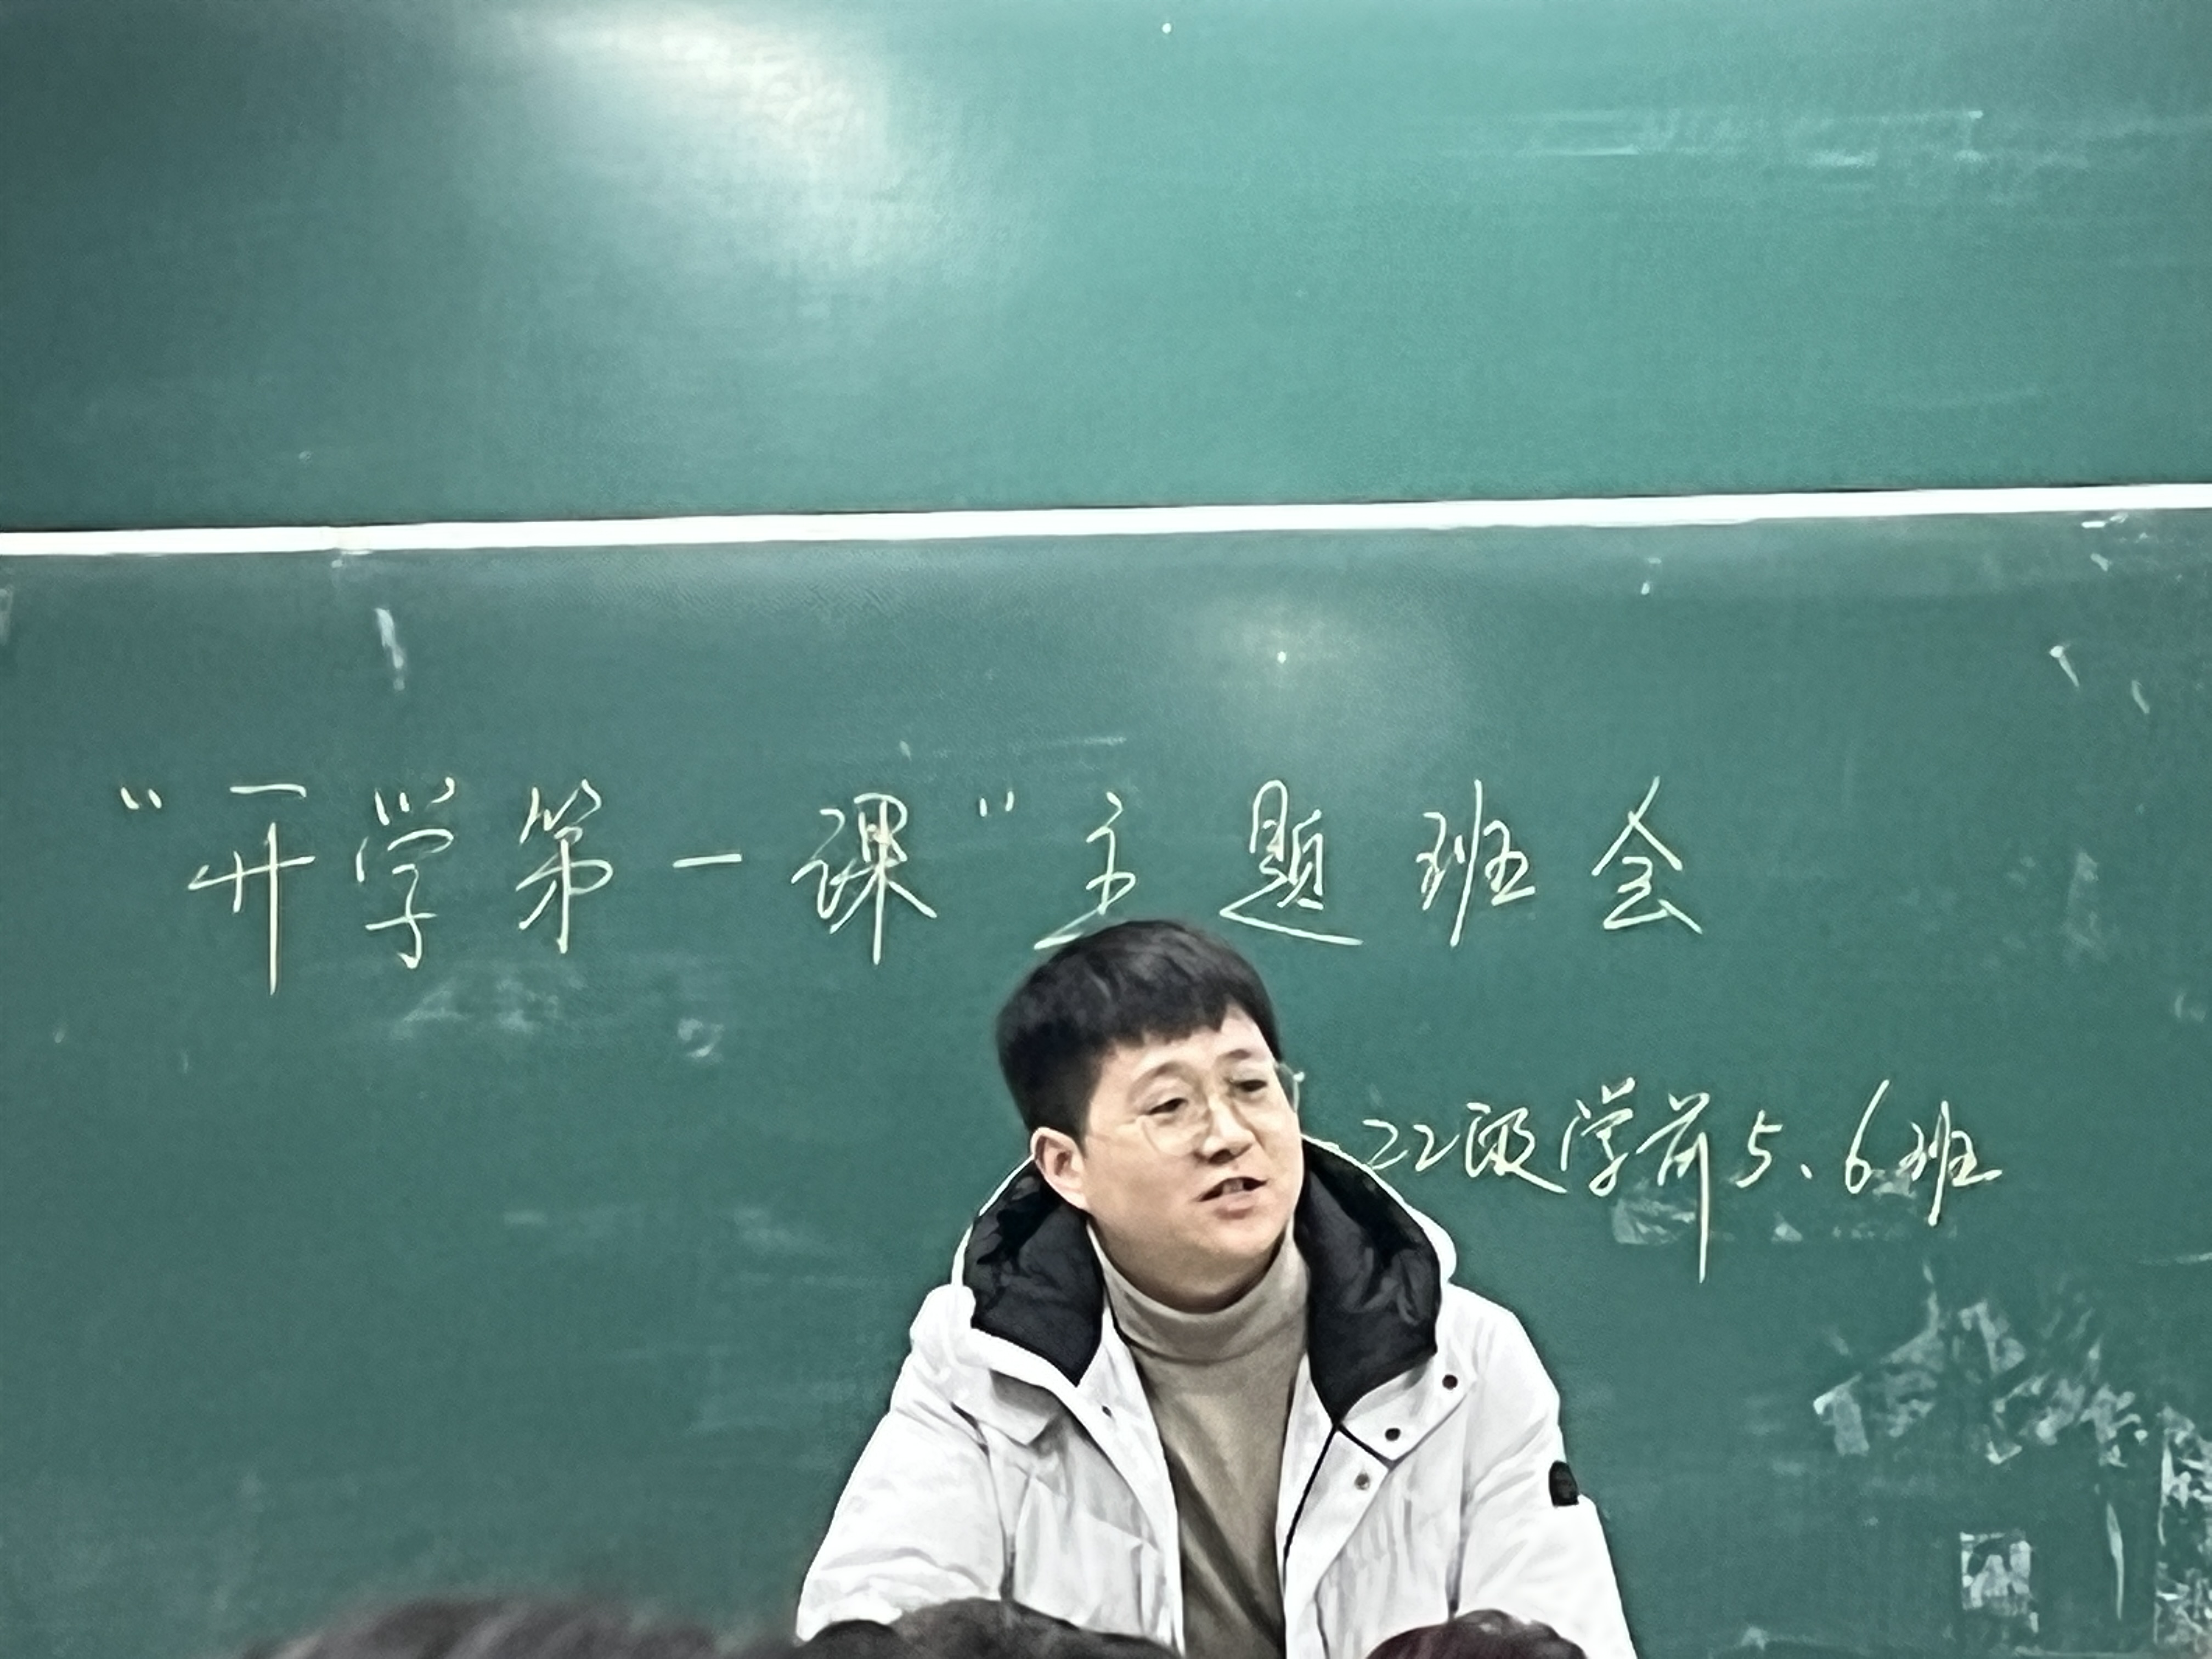 “开学第一课”主题班会
22级学前5、6班